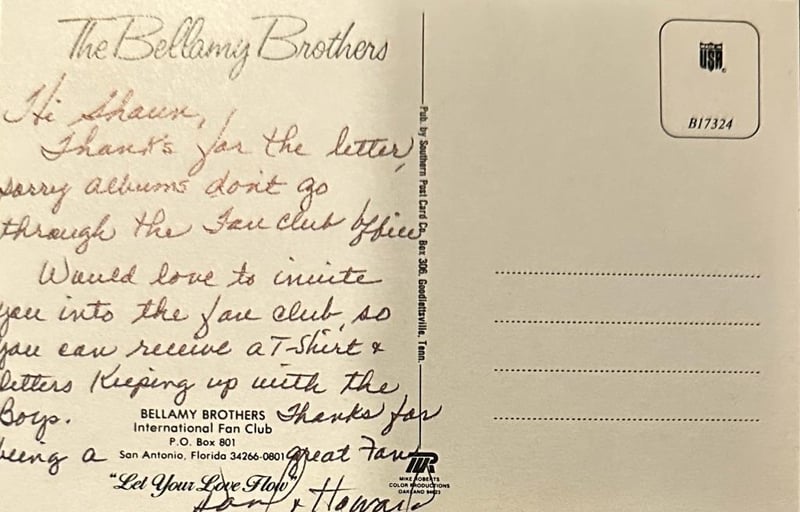 The Bellamy Brothers
Hi Shawn,
Thanks for the letter,
sorry albums dont go
through the Fan club office
Would love to invite
you into the fan club, so
you can receive a T-Shirt &
letters Keeping up with the
Boys. Thanks for
being a great Fan
& Howard
BELLAMY BROTHERS
International Fan Club
P.O. Box 801
San Antonio, Florida 34266-0801
"Let Your Love Flow"
Pub. by Southern Post Card Co. Box 306. Goodlettsville, Tenn.
MADE IN
USA
B17324
MR
MIKE ROBERTS
COLOR PRODUCTIONS
OAKLAND 94623